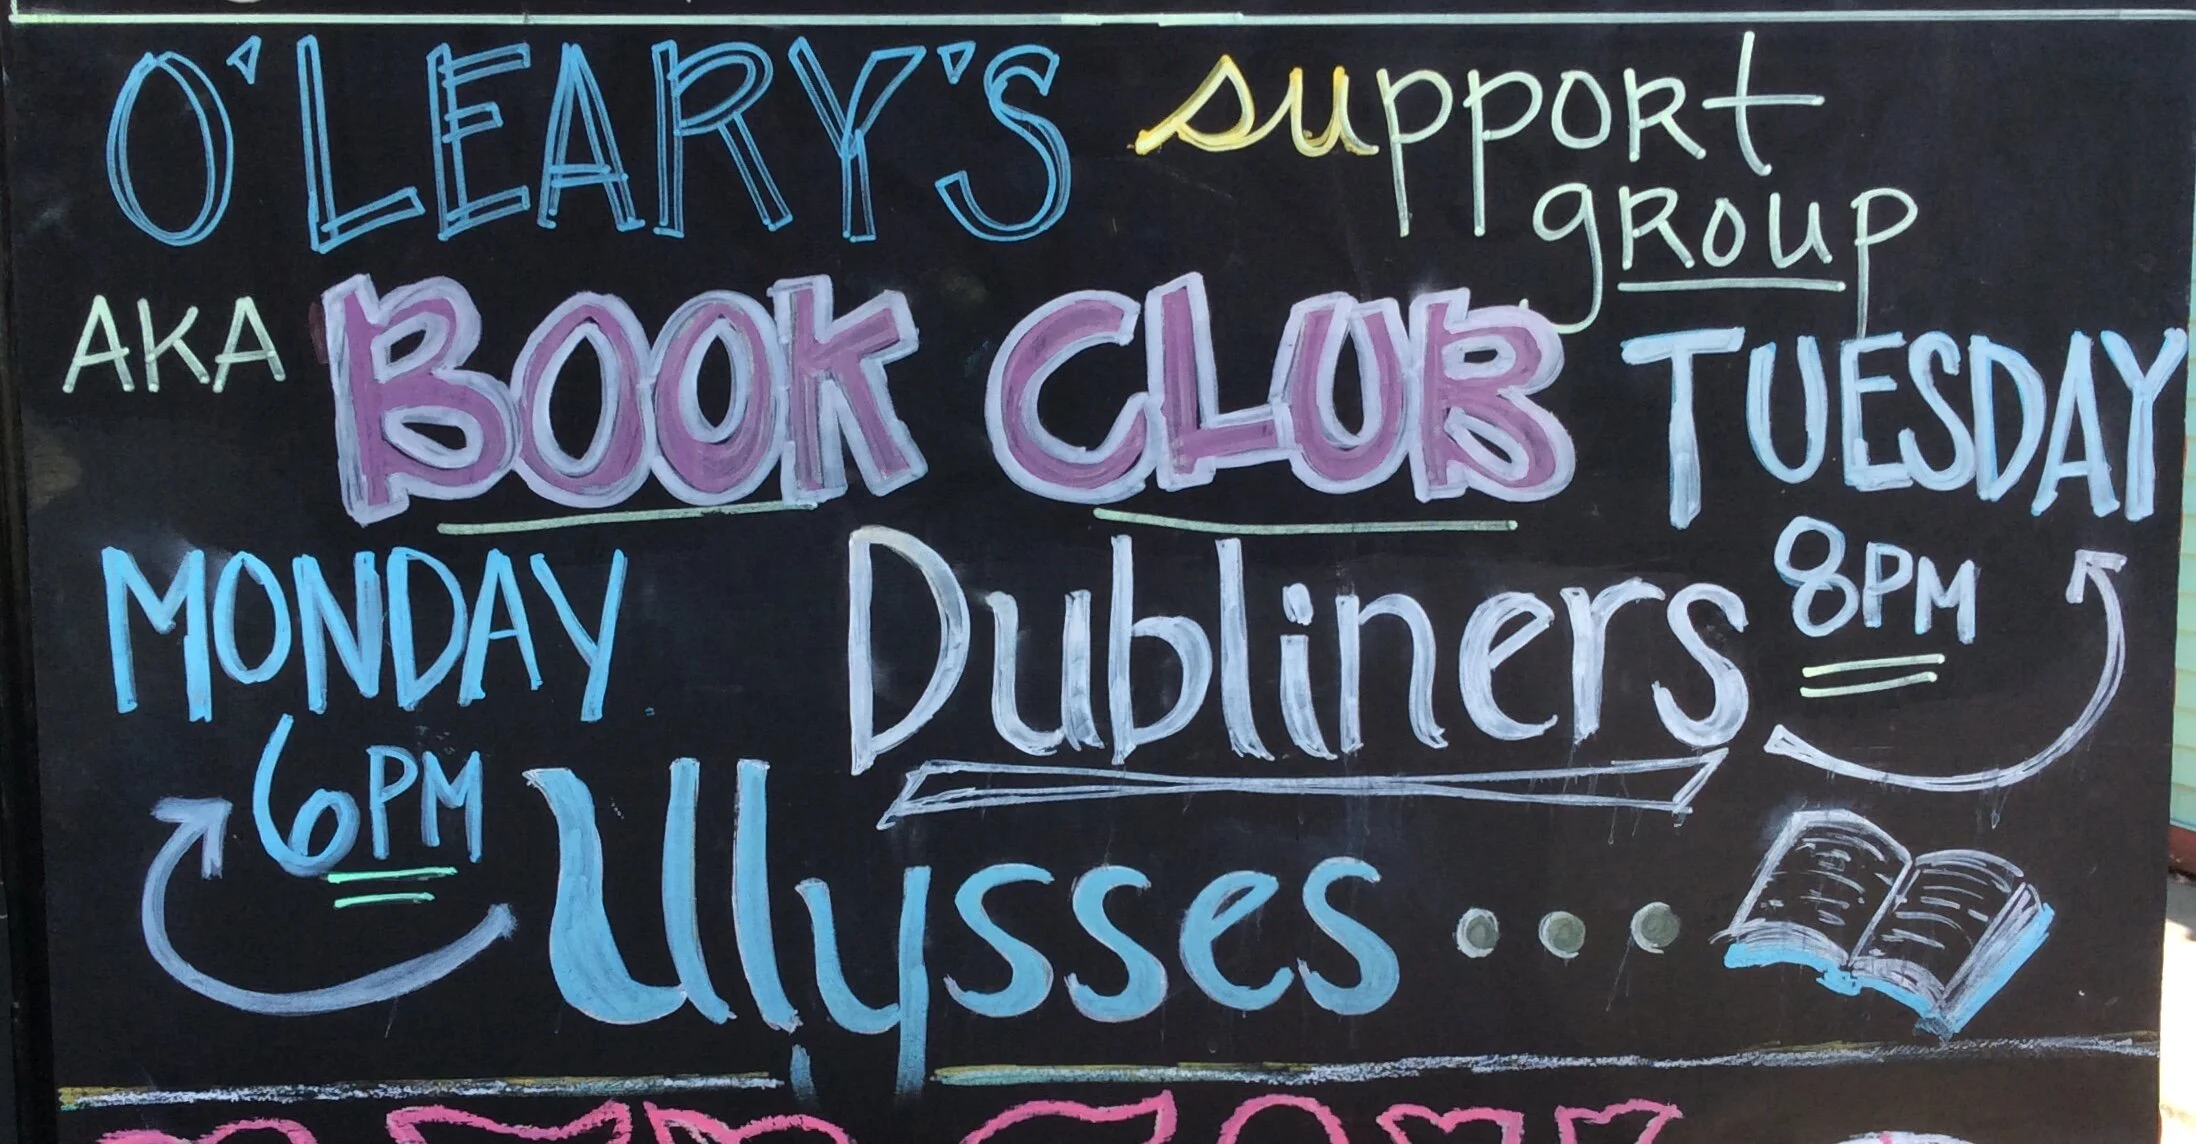 O'LEARY'S support
group
AKA BOOK CLUB TUESDAY
8PM
MONDAY Dubliners
6PM
Ulysses...